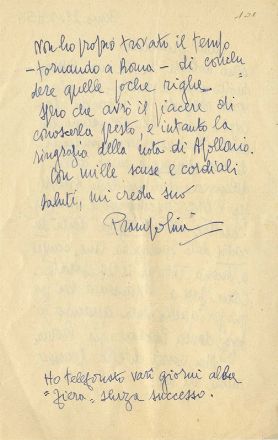 Non ho proprio trovato il tempo
– tornando a Roma – di conclu
dere quelle poche righe.
Spero che avrò il piacere di
conoscerla presto, e intanto la
ringrazio della nota di Apollonio.
Con mille scuse e cordiali
saluti, mi creda suo
Prampolini
Ho telefonato vari giorni alla
"Fiera" senza successo.